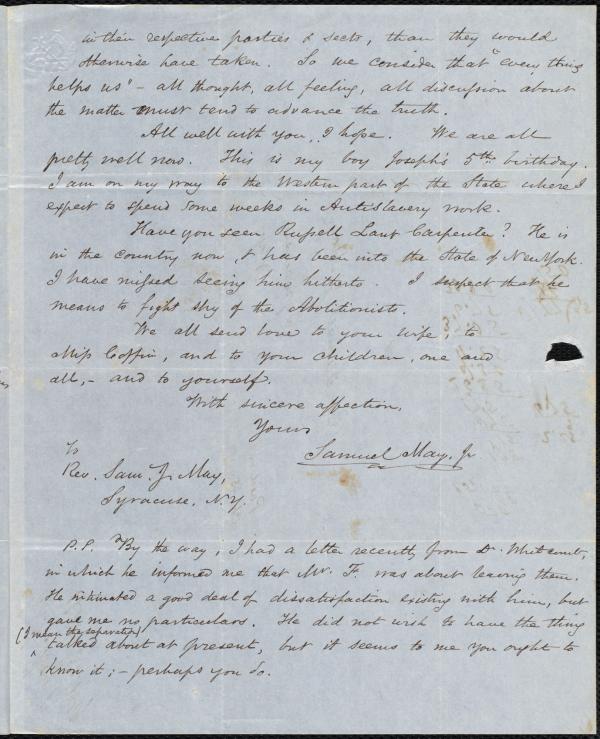 in their respective parties & sects, than they would
otherwise have taken. So we consider that "every thing
helps us" - all thought, all feeling, all discussion about
the matter must tend to advance the truth.
All well with you, I hope. We are all
pretty well now. This is my boy Joseph's 5th birthday.
I am on my way to the Western part of the State where I
expect to spend some weeks in Antislavery work.
Have you seen Russell Lant Carpenter? He is
in the country now, & has been into the State of New York.
I have missed seeing him hitherto. I suspect that he
means to fight shy of the Abolitionists.
We all send love to your wife, to
Miss Coffin, and to your children, one and
all, - and to yourself.
With sincere affection,
Yours
Samuel May, Jr
To
Rev. Sam. J. May,
Syracuse, N.Y.
P.S. By the way, I had a letter recently from Dr.
in which he informed me that Mr. F. was about leaving them.
He intimated a good deal of dissatisfaction existing with him, but
gave me no particulars. He did not wish to have the thing
(I mean the separation)
talked about at present, but it seems to me you ought to
know it; - perhaps you do.